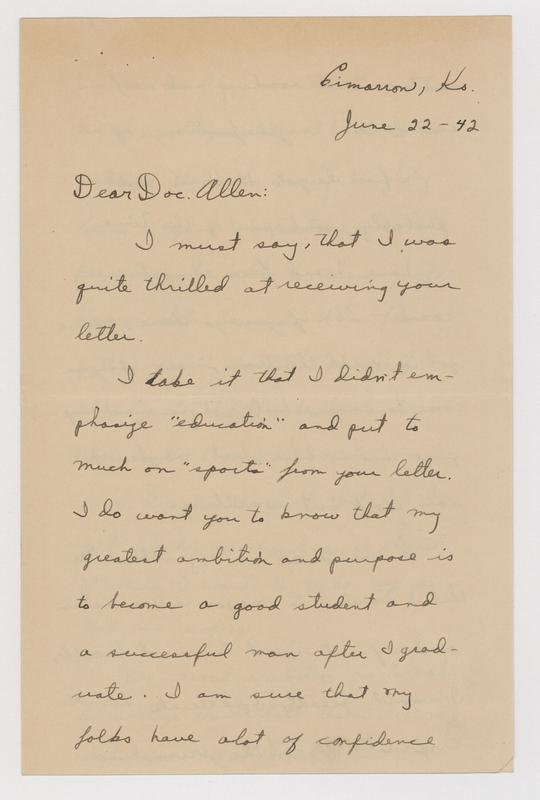 Cimarron, Ks.
June 22-42
Dear Doc. Allen:
I must say, that I was
quite thrilled at receiving your
letter.
I take it that I didn't em-
phasize "education" and put to
much on "sports" from your letter.
I do want you to know that my
greatest ambition and purpose is
to become a good student and
a successful man after I grad-
uate. I am sure that my
folks have alot of confidence